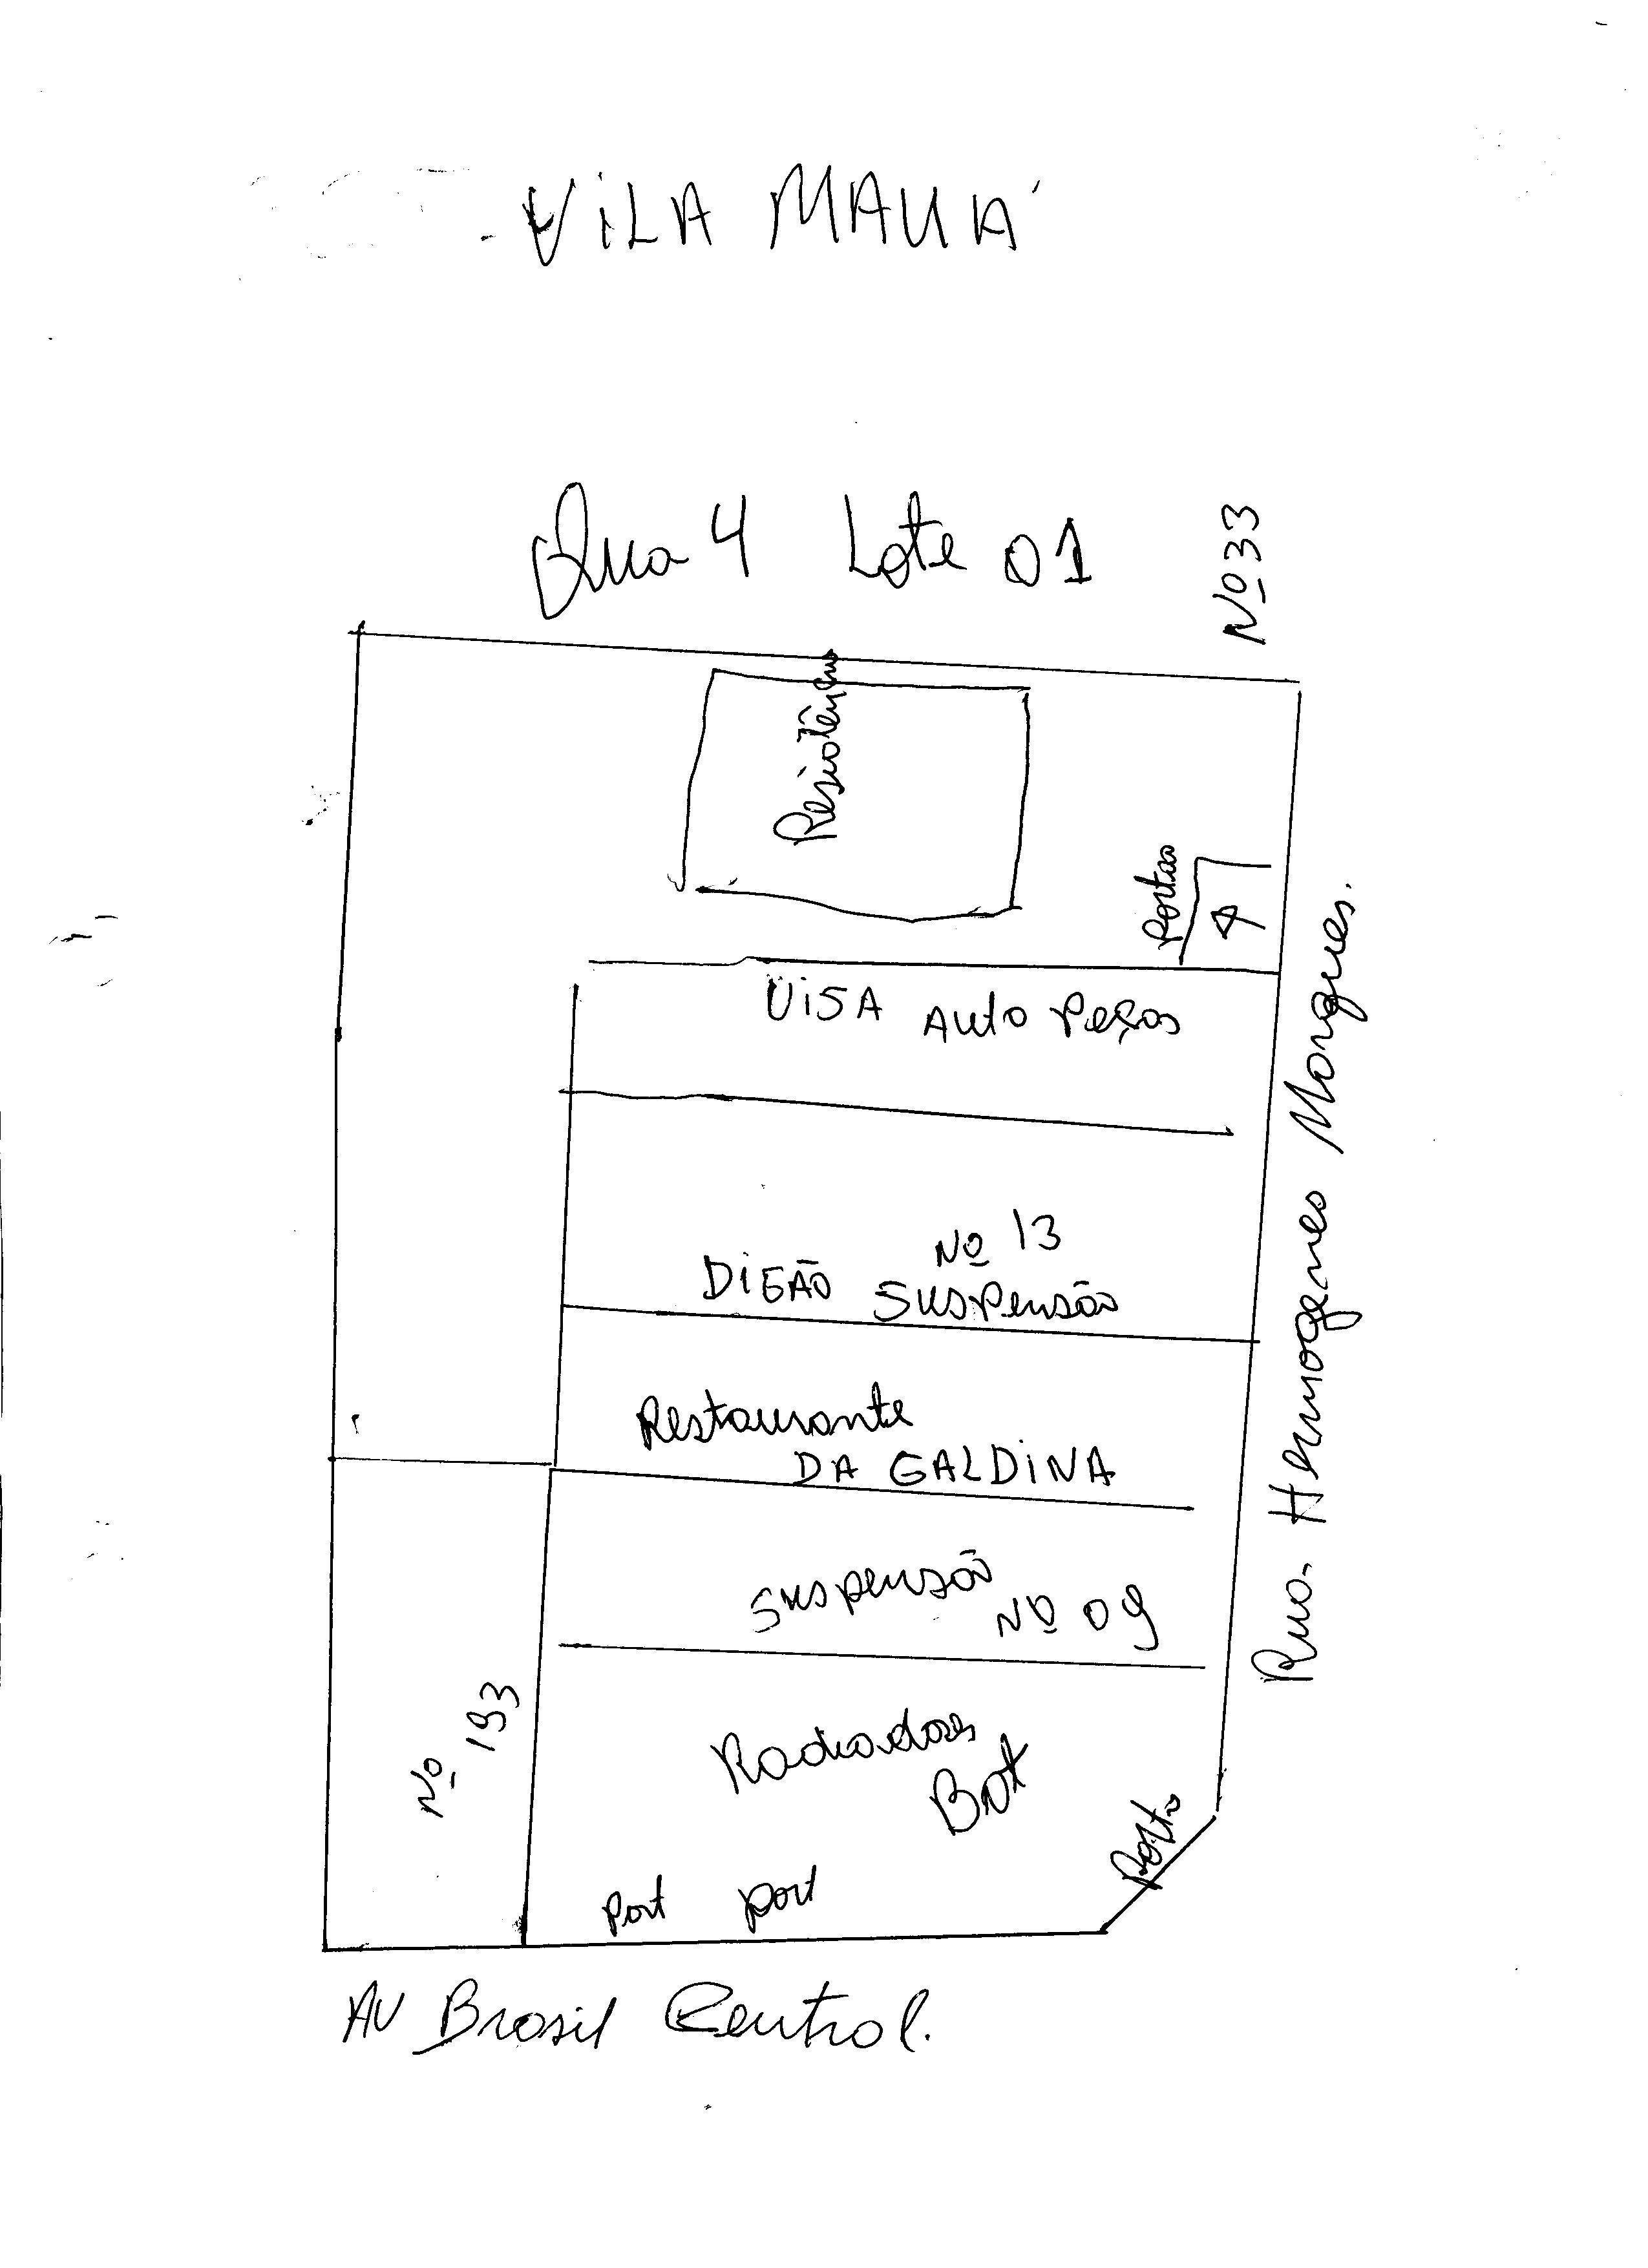 VILA MAUÁ
Qua 4 Lote 01
Nº 33
Residência
Portão
VISA Auto Peças
Nº 13
DIGÃO Suspensão
Restaurante
DA GALDINA
Suspensão
Nº 09
Nº 193
Radiadores
Bot
Port Port
Porto
Rua Hermogenes Marques.
AV Brasil Central.